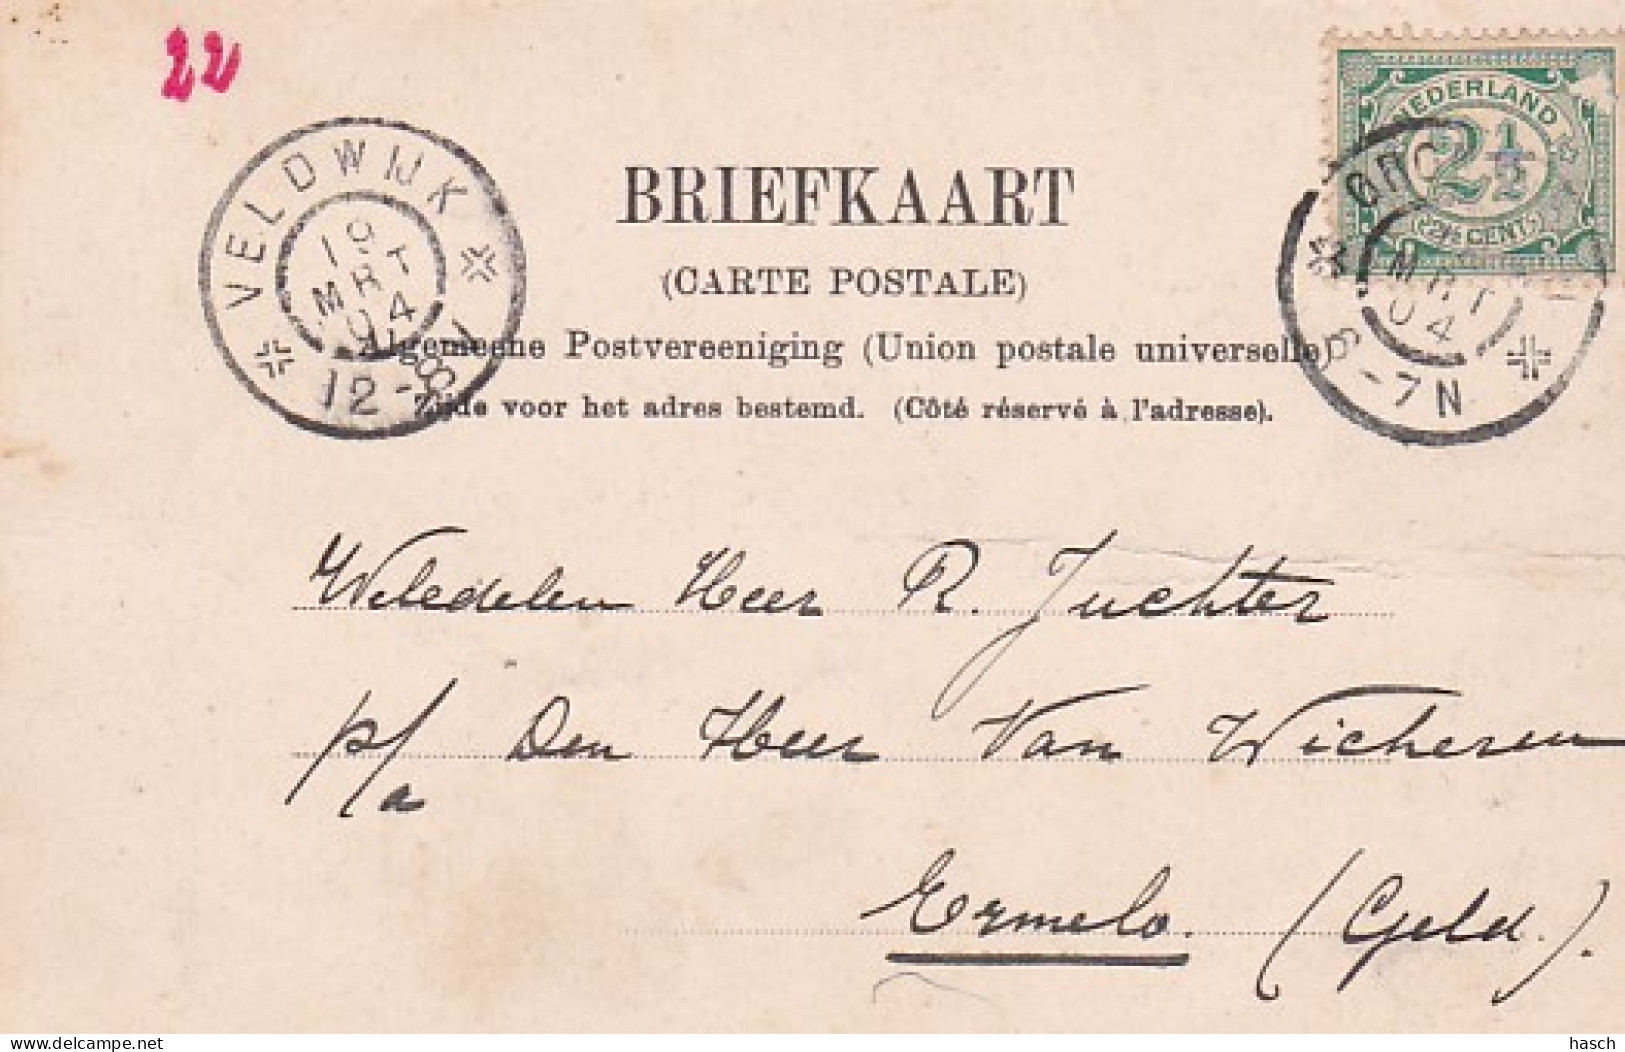 22
NEDERLAND
2½
2½ CENT
VELDWIJK
19
MRT
04
12-8V
MRT
04
-7N
BRIEFKAART
(CARTE POSTALE)
Algemeene Postvereeniging (Union postale universelle)
Zijde voor het adres bestemd. (Côté réservé à l'adresse).
Weledelen Heer R. Juchter
p/a Den Heer Van Wicheren
Ermelo. (Geld.).
delcampe.net
hasch